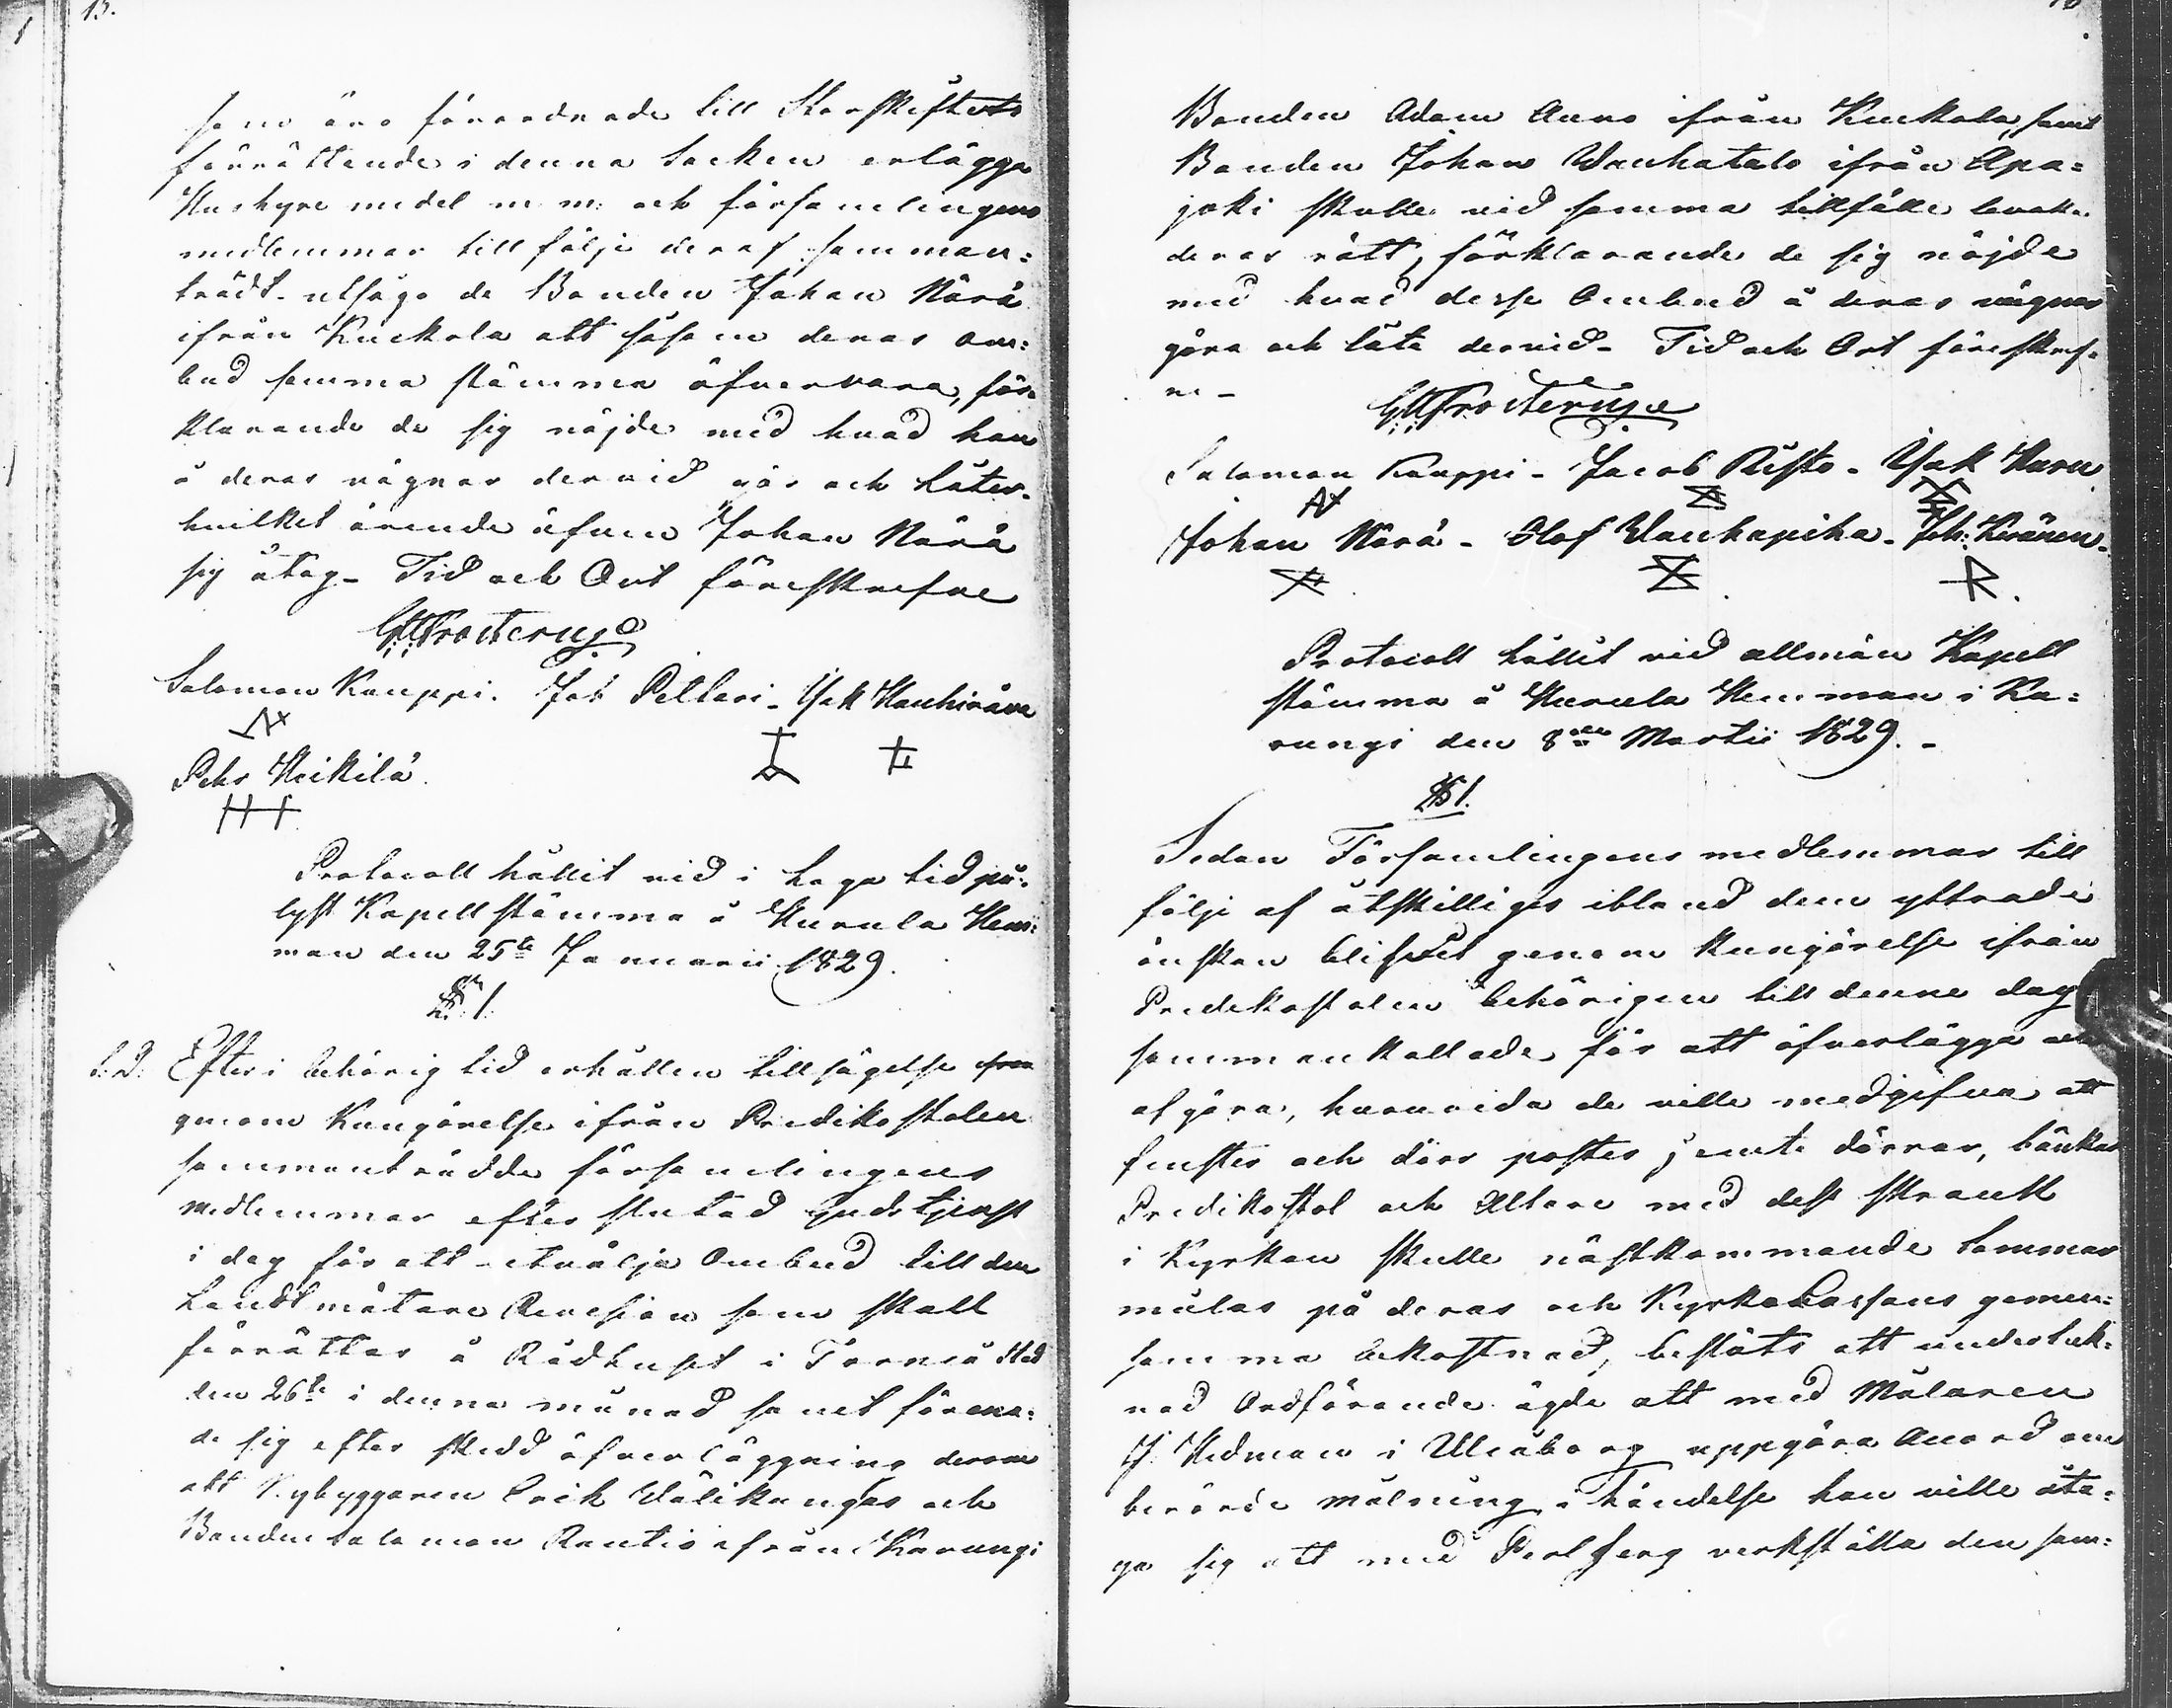 15.
som äro förordnade till Storskiftets
förrättande i denna Socken erlägga
Hushyre medel m. m. och församlingens
medlemmar till följe deraf samman=
trädt. utsågo de Bonden Johan Närä
ifrån Kuckola att såsom deras om=
bud samma stämma öfvervara, för=
klarande de sig nöjde med hvad han
å deras vägnar dervid gör och låter.
hvilket ärende äfven Johan Närä
sig åtog. Tid och Ort föreskrefne
Salomon Kauppi. Joh Pellari. Isak Hanhivaara
Pehr Heikilä.
Protocoll hållit vid i laga tid på=
lyst Kapellstämma å Hurula Hem=
man den 25te Januarii 1829.
§ 1.
S.D. Efter i behörig tid erhållen tillsägelse
genom Kungörelse ifrån Predikostolen
sammanträdde församlingens
medlemmar efter slutad Gudstjenst
i dag för att utvälja Ombud till den
Landtmätare Revesion som skall
förrättas å Rådhuset i Torneå Stad
den 26te i denna månad samt förena=
de sig efter skedd öfverläggning derom
att Nybyggaren Erik Välikangas och
Bonden Salomon Rautio ifrån Karungi
Bonden Adam Auno ifrån Kuckola, samt
Bonden Johan Vanhatalo ifrån Apa=
joki skulle vid samma tillfälle bevaka
deras rätt, förklarande de sig nöjde
med hvad desse Ombud å deras vägnar
göra och låta dervid. Tid och Ort föreskref=
ne.
Salomon Kauppi. Jacob Risto. Isak Huru
Johan Närä. Olof Vanhapiha. Joh: Keränen.
Protocoll hållit vid allmän Kapell
stämma å Hurula Hemman i Ka=
rungi den 8de Martii 1829.
§ 1.
Sedan Församlingens medlemmar till
följe af åtskilliges ibland dem yttrade
önskan blifvit genom Kungörelse ifrån
Predikostolen behörigen till denne dag
sammankallade för att öfverlägga och
afgöra, huruvida de ville medgifva att
fenster och dörr poster jemte dörrar, bänkar
Predikostol och Altare med dess skrank
i Kyrkan skulle nästkommande Sommar
målas på deras och KyrkoCassans gemen=
samma bekostnad, beslöts att undertek=
nad Ordförande ägde att med Målaren
J. Hedman i Uleåborg uppgöra Accord om
berörde målning, i händelse han ville åta=
ga sig att med Perlfärg verkställa den sam=